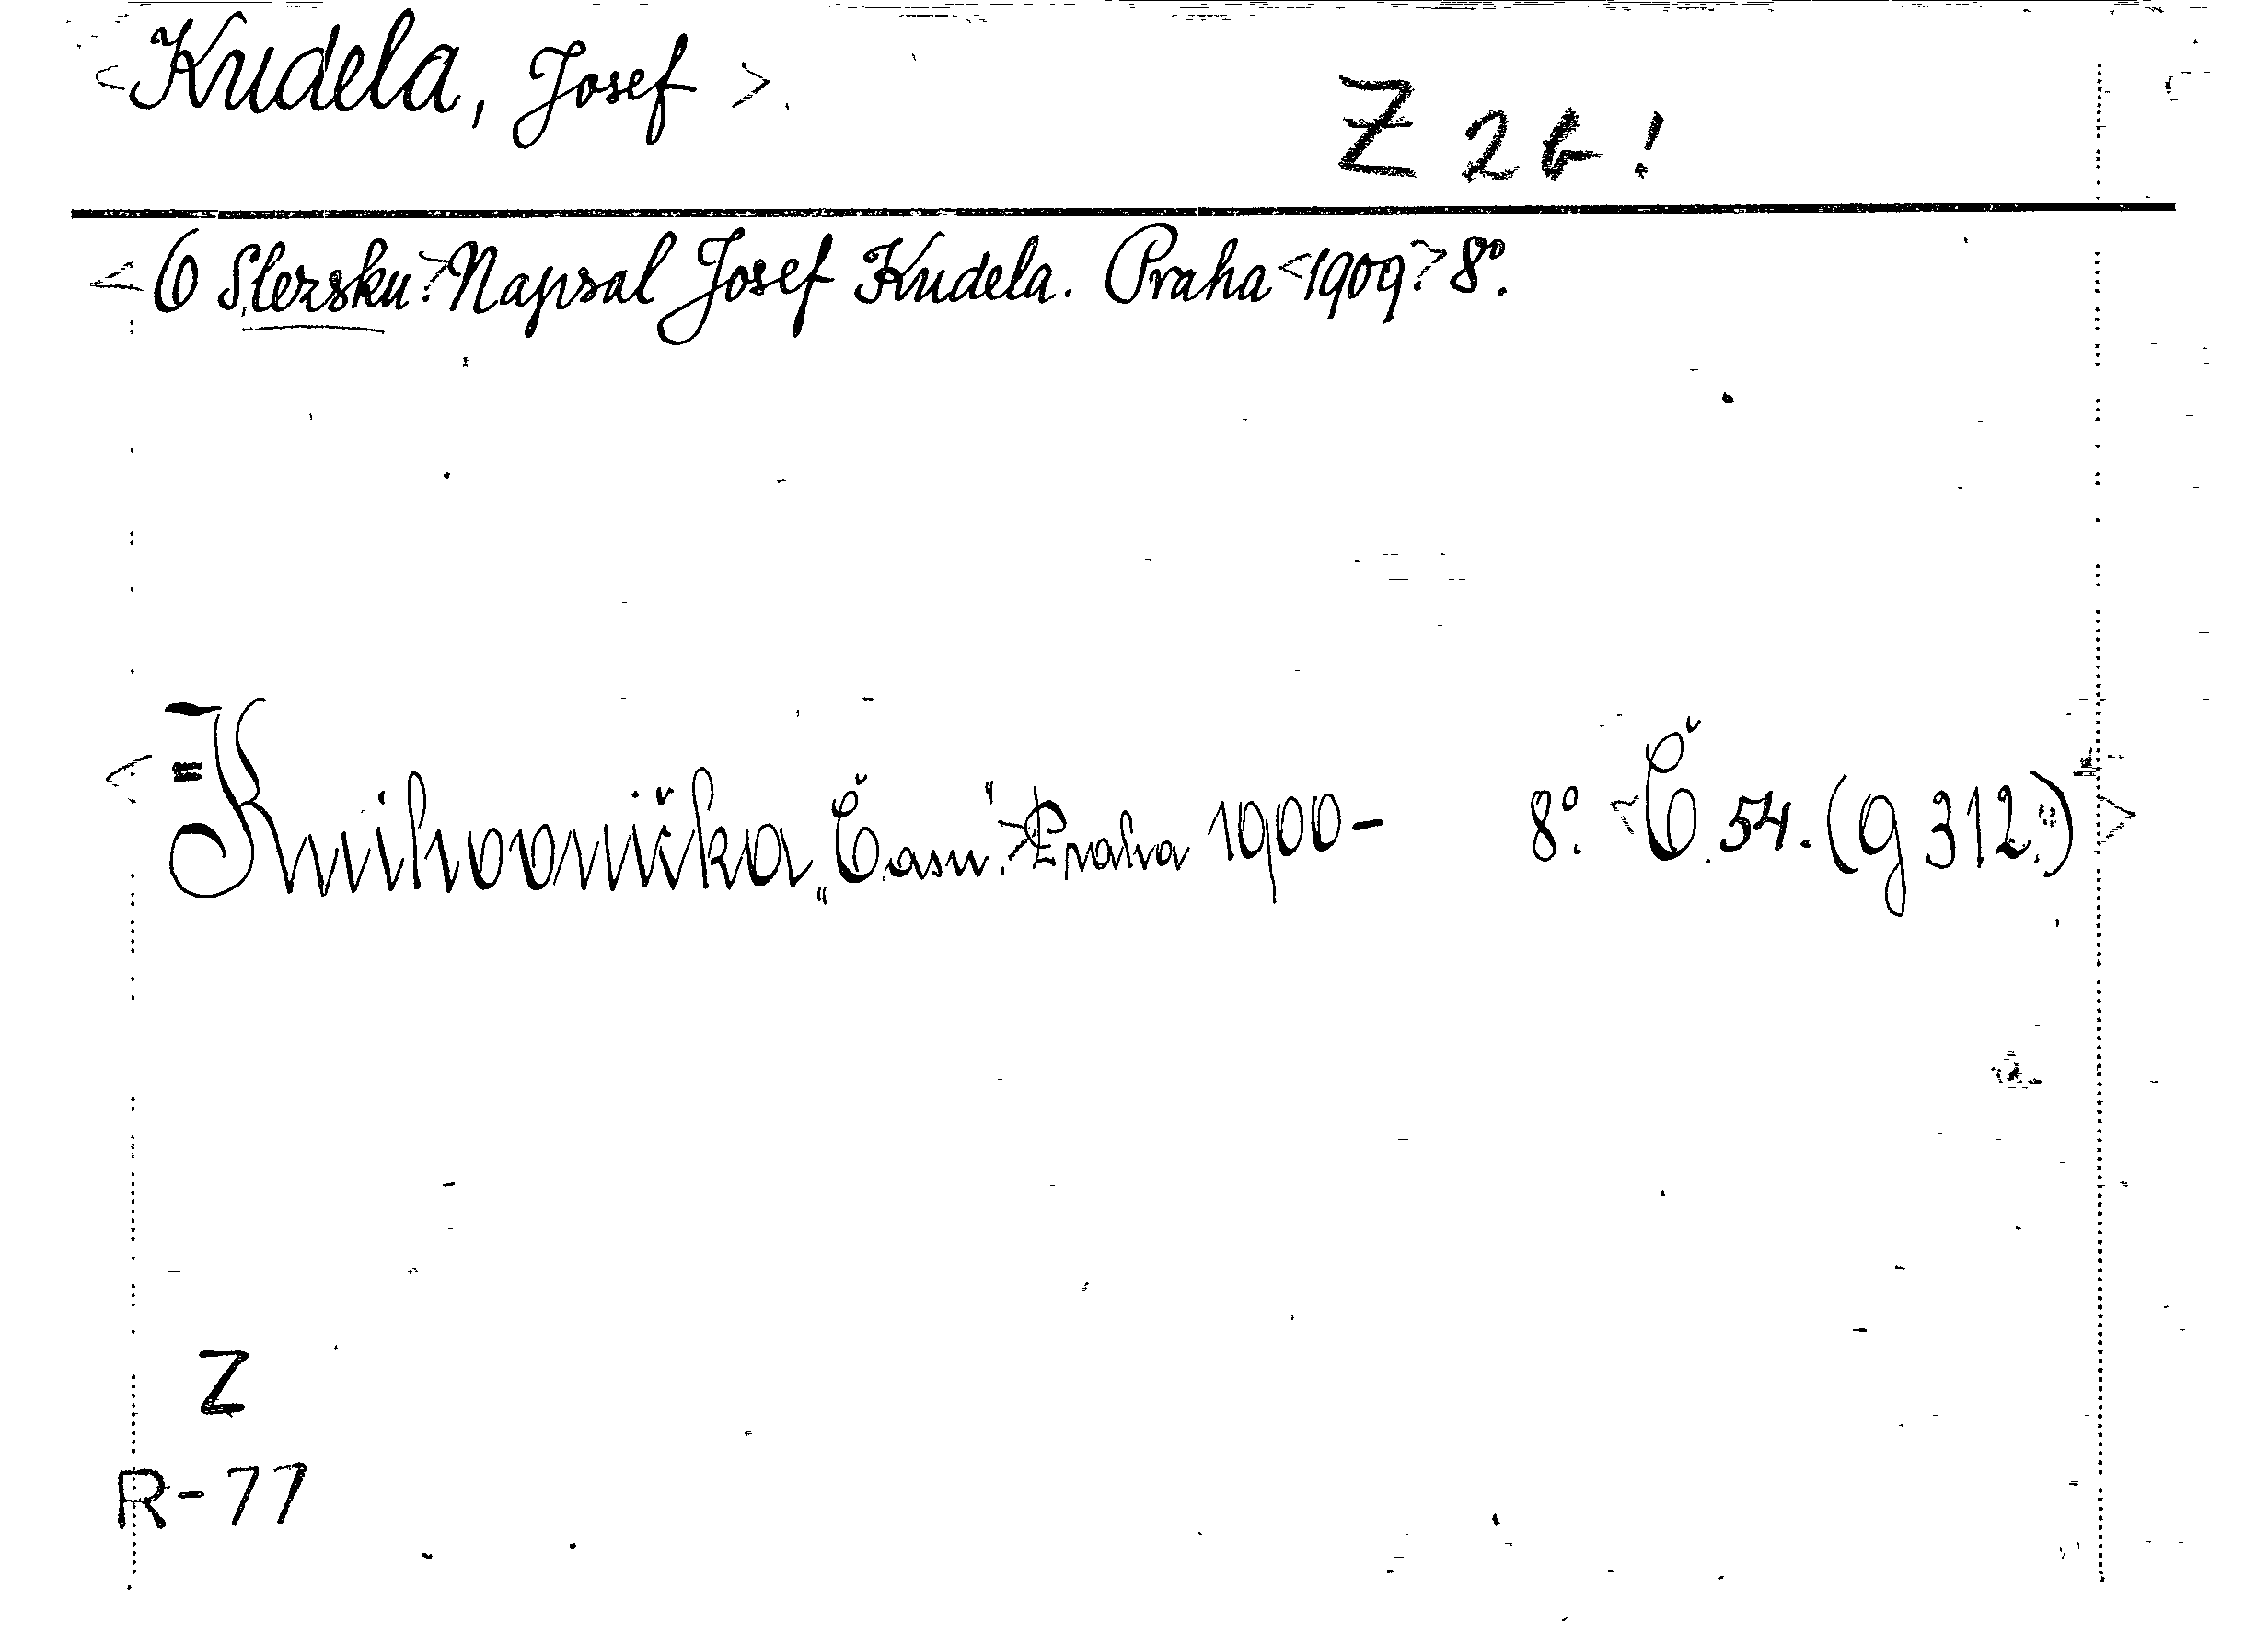 <Kudela, Josef>.
Z 2b!
<O Slezsku.> Napsal Josef Kudela. Praha <1909.> 8º.
<=Knihovnička „Času".> Praha 1900- 8º. <Č. 54. (g 312.)>
Z
R-77